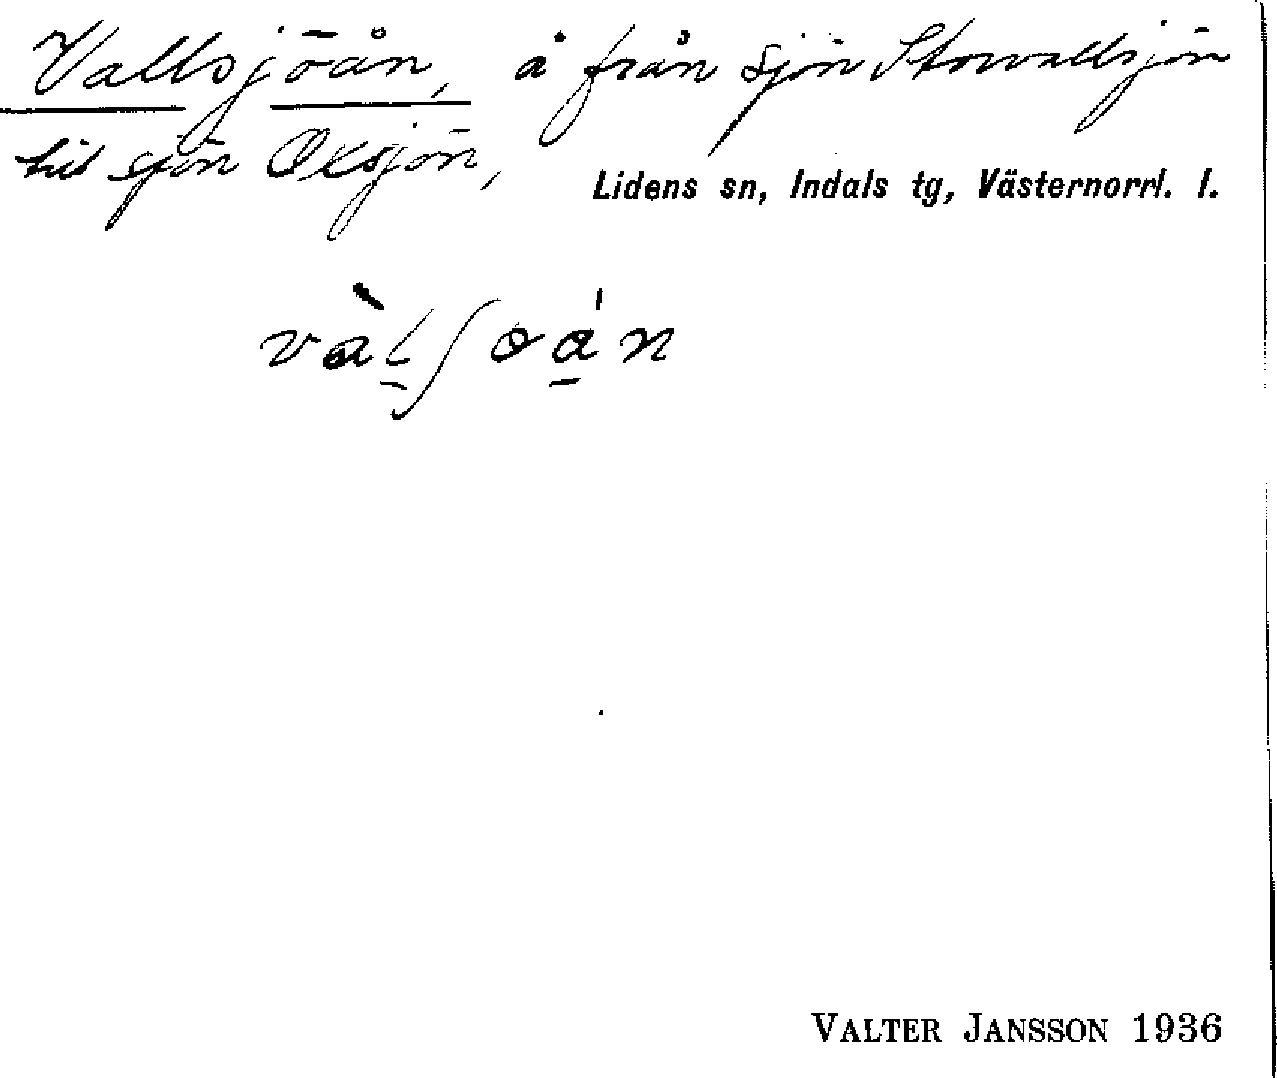 Vallsjöån, å från sjön Storvallsjön
till sjön Oxsjön,
Lidens sn, Indals tg, Västernorrl. l.
VALTER JANSSON 1936